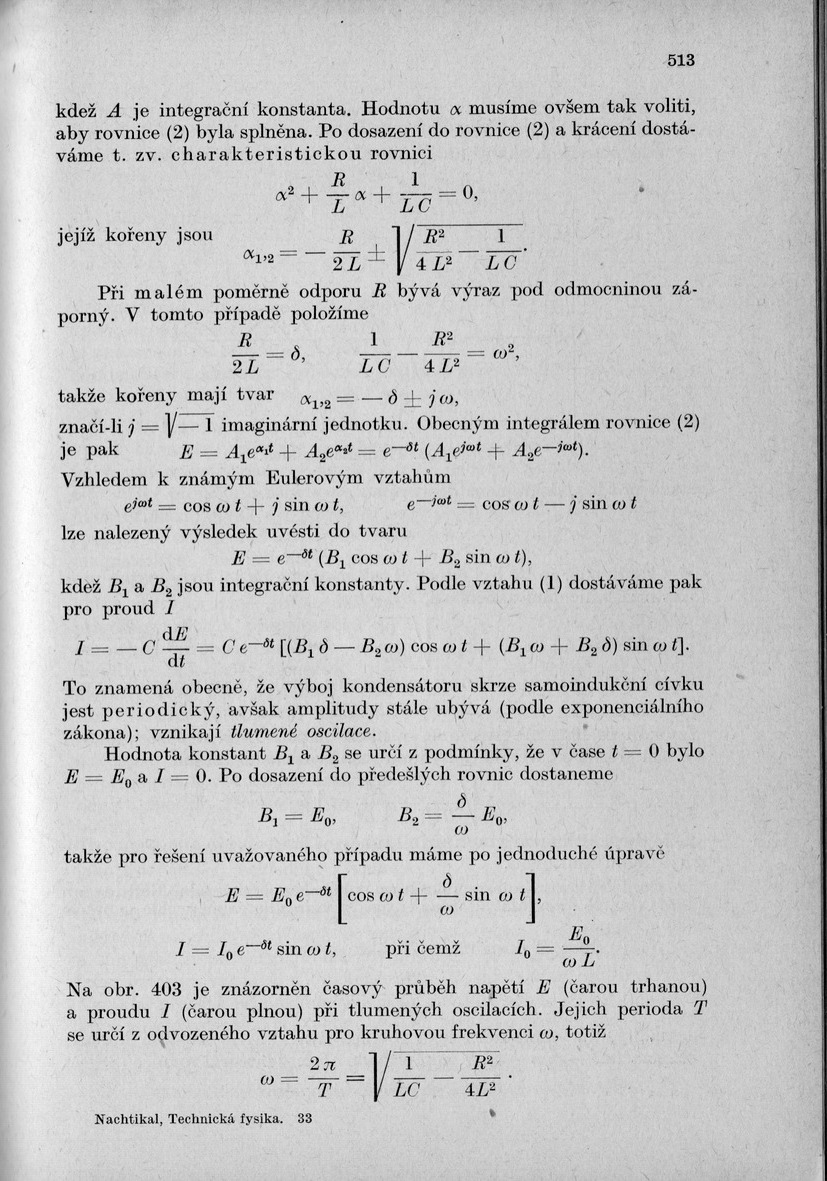 513
kdež A je integrační konstanta. Hodnotu α musíme ovšem tak voliti,
aby rovnice (2) byla splněna. Po dosazení do rovnice (2) a krácení dostá-
váme t. zv. charakteristickou rovnici
α² + R/L α + 1/LC = 0,
jejíž kořeny jsou
α₁,₂ = — R/2L ± √(R²/4L² — 1/LC).
Při malém poměrně odporu R bývá výraz pod odmocninou zá-
porný. V tomto případě položíme
R/2L = δ, 1/LC — R²/4L² = ω²,
takže kořeny mají tvar α₁,₂ = — δ ± jω,
značí-li j = √—1 imaginární jednotku. Obecným integrálem rovnice (2)
je pak E = A₁e^(α₁t) + A₂e^(α₂t) = e^(—δt) (A₁e^(jωt) + A₂e^(—jωt)).
Vzhledem k známým Eulerovým vztahům
e^(jωt) = cos ω t + j sin ω t, e^(—jωt) = cos ω t — j sin ω t
lze nalezený výsledek uvésti do tvaru
E = e^(—δt) (B₁ cos ω t + B₂ sin ω t),
kdež B₁ a B₂ jsou integrační konstanty. Podle vztahu (1) dostáváme pak
pro proud I
I = — C dE/dt = C e^(—δt) [(B₁ δ — B₂ω) cos ω t + (B₁ω + B₂ δ) sin ω t].
To znamená obecně, že výboj kondensátoru skrze samoindukční cívku
jest periodický, avšak amplitudy stále ubývá (podle exponenciálního
zákona); vznikají tlumené oscilace.
Hodnota konstant B₁ a B₂ se určí z podmínky, že v čase t = 0 bylo
E = E₀ a I = 0. Po dosazení do předešlých rovnic dostaneme
B₁ = E₀, B₂ = δ/ω E₀,
takže pro řešení uvažovaného případu máme po jednoduché úpravě
E = E₀ e^(—δt) [cos ω t + δ/ω sin ω t],
I = I₀ e^(—δt) sin ω t, při čemž I₀ = E₀/ωL.
Na obr. 403 je znázorněn časový průběh napětí E (čarou trhanou)
a proudu I (čarou plnou) při tlumených oscilacích. Jejich perioda T
se určí z odvozeného vztahu pro kruhovou frekvenci ω, totiž
ω = 2π/T = √(1/LC — R²/4L²).
Nachtikal, Technická fysika. 33